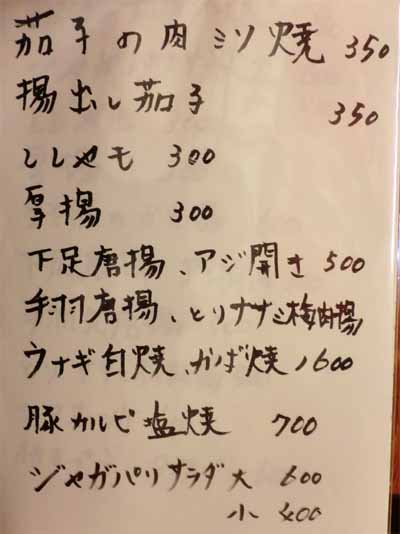 茄子の肉ミソ焼 350
揚出し茄子 350
ししゃモ 300
厚揚 300
下足唐揚、アジ開き 500
手羽唐揚、とりササミ梅肉揚
ウナギ白焼、かば焼 1600
豚カルビ塩焼 700
ジャガパリサラダ 大 600
小 400